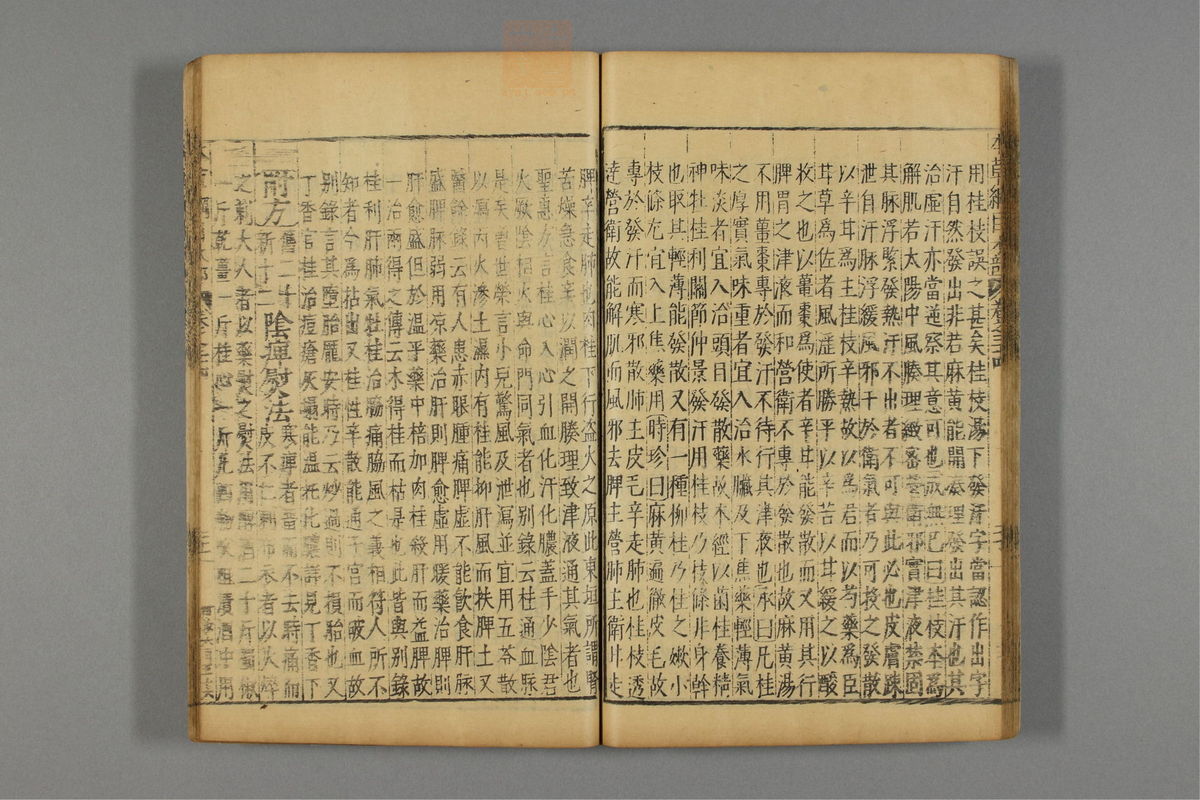 用桂枝誤之甚矣桂枝湯下發汗字當認作出字
汗自然發出非若麻黃能開腠理發出其汗也其
治虛汗亦當逆察其意可也成無已曰桂枝本為
解肌若太陽中風腠理緻密營衛邪實津液禁固
其脉浮緊發熱汗不出者不可與此必也皮膚踈
泄自汗脉浮緩風邪干於衛氣者乃可投之發散
以辛甘為主桂枝辛熱故以為君而以芍藥為臣
甘草為佐者風淫所勝平以辛苦以甘緩之以酸
收之也以薑棗為使者辛甘能發散而又用其行
脾胃之津液而和營衛不專於發散也故麻黃湯
不用薑棗專於發汗不待行其津液也承曰凡桂
之厚實氣味重者宜入治水臟及下焦藥輕薄氣
味淡者宜入治頭目發散藥故本經以菌桂養精
神牡桂利關節仲景發汗用桂枝乃枝條非身幹
也取其輕薄能發散又有一種柳桂乃桂之嫩小
枝條尤宜入上焦藥用時珍曰麻黃遍徹皮毛故
專於發汗而寒邪散肺主皮毛辛走肺也桂枝透
達營衛故能解肌而風邪去脾主營肺主衛甘走
脾辛走肺也肉桂下行益火之原此東垣所謂腎
苦燥急食辛以潤之開腠理致津液通其氣者也
聖惠方言桂心入心引血化汗化膿蓋手少陰君
火厥陰相火與命門同氣者也别錄云桂通血脉
是矣曾世榮言小兒驚風及泄瀉並宜用五苓散
以瀉丙火滲土濕内有桂能抑肝風而扶脾土又
醫餘錄云有人患赤眼腫痛脾虛不能飲食肝脉
盛脾脉弱用凉藥治肝則脾愈虛用暖藥治脾則
肝愈盛但於温平藥中倍加肉桂殺肝而益脾故
一治兩得之傳云木得桂而枯是也此皆與别錄
桂利肝肺氣牡桂治脇痛脇風之義相符人所不
知者今為拈出又桂性辛散能通子宮而破血故
别錄言其墮胎龎安時乃云炒過則不損胎也又
丁香官桂治痘瘡灰塌能温托化膿詳見丁香下